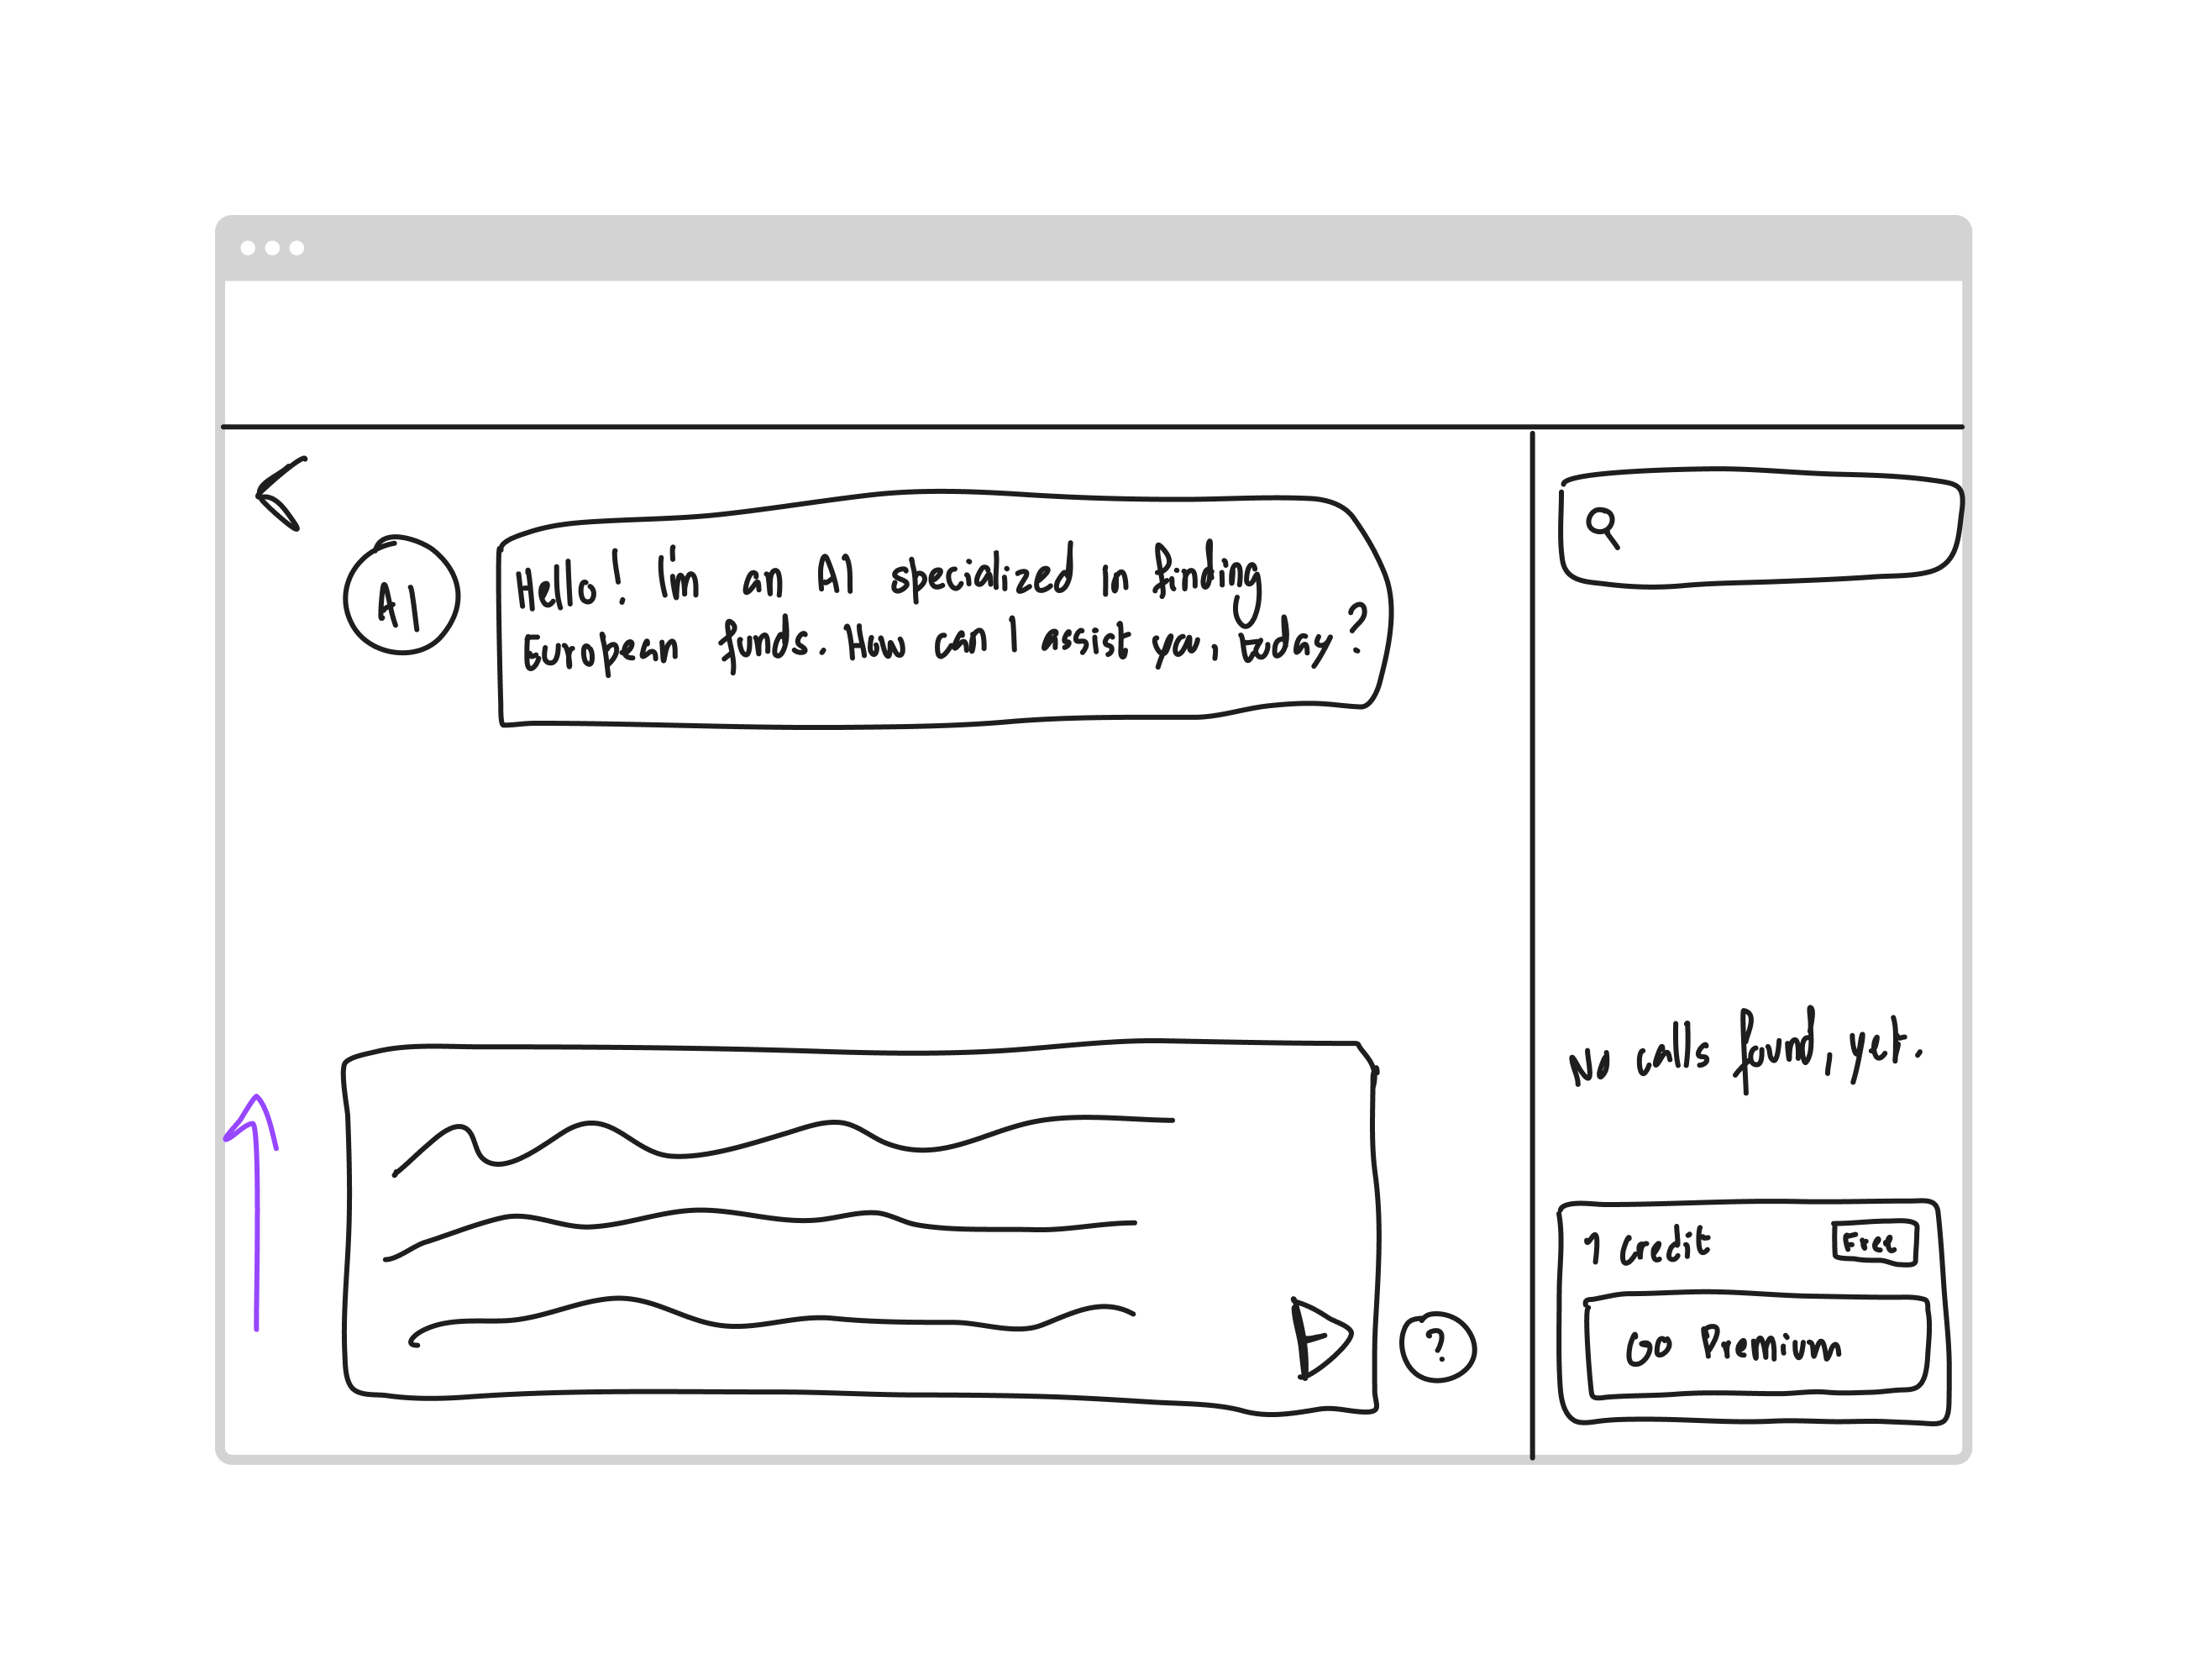 AI
Hello! I'm an AI specialized in finding
European funds. How can I assist you, today?
No calls found, yet.
1 credit
Free
Go Premium
?